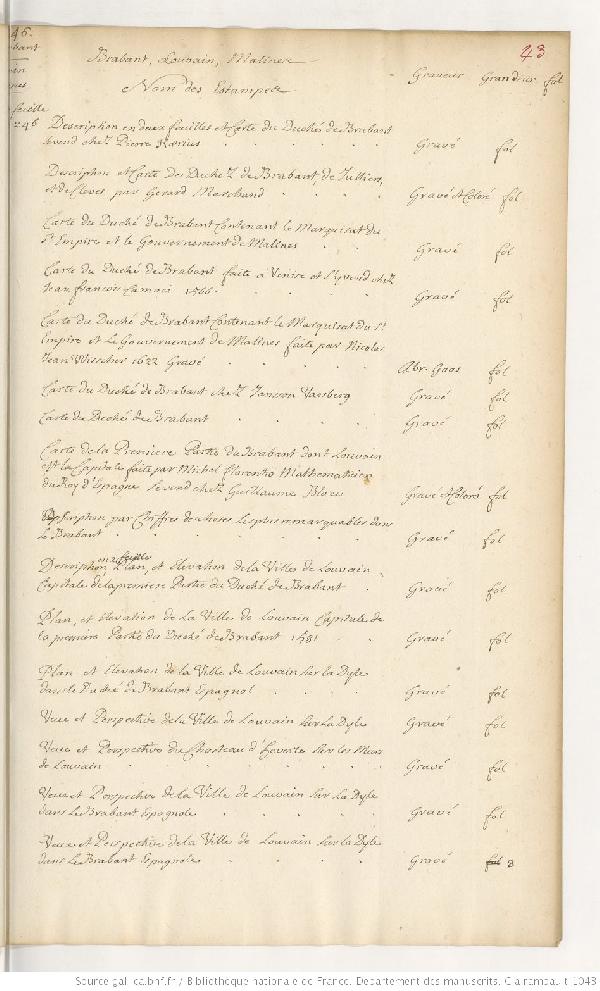 43
Brabant, Louvain, Malines
Nom des Estampes
Graveur Grandeur fol
246
Description en deux feuilles et Carte du Duché de Brabant
se vend chez Pierre Kærius Gravé fol
Description et Carte des Duchez de Brabant, de Julliers,
et de Cleves par Gerard Marchand Gravé et Coloré fol
Carte du Duché de Brabant Contenant le Marquisat du
St Empire et le Gouvernement de Malines Gravé fol
Carte du Duché de Brabant faite a Venise et se vend chez
Jean francois Camoci 1566. Gravé fol
Carte du Duché de Brabant Contenant le Marquisat du St
Empire et Le Gouvernement de Malines faite par Nicolas
Jean Visscher 1622 Gravé Abr. Goos fol
Carte du Duché de Brabant chez Janson Gravé fol
Carte du Duché de Brabant Gravé fol
Carte de la Premiere Partie du Brabant dont Louvain
est la Capitale faite par Michel florentio Mathematicien
du Roy d'Espagne se vend chez Guillaume Blaeu Gravé et Coloré fol
Description par Chiffres des choses les plus remarquables dans
le Brabant Gravé fol
Description en 2 feuilles Plan, et Elevation de la Villes de Louvain
Capitale de la premiere Partie du Duché de Brabant Gravé fol
Plan, et Elevation de La Ville de Louvain Capitale de
la premiere Partie du Duché de Brabant 1581 Gravé fol
Plan et Elevation de la Ville de Louvain sur la Dyle
dans le Duché de Brabant Espagnol Gravé fol
Veue et Perspective de la Ville de Louvain sur la Dyle Gravé fol
Veue et Perspective du Chasteau d'Heverle sur les Murs
de Louvain Gravé fol
Veue et Perspective de la Ville de Louvain sur La Dyle
dans Le Brabant Espagnole Gravé fol
Veue et Perspective de la Ville de Louvain sur la Dyle
dans Le Brabant Espagnole Gravé fol 8
Source gallica.bnf.fr / Bibliothèque nationale de France. Département des manuscrits. Clairambault 1043